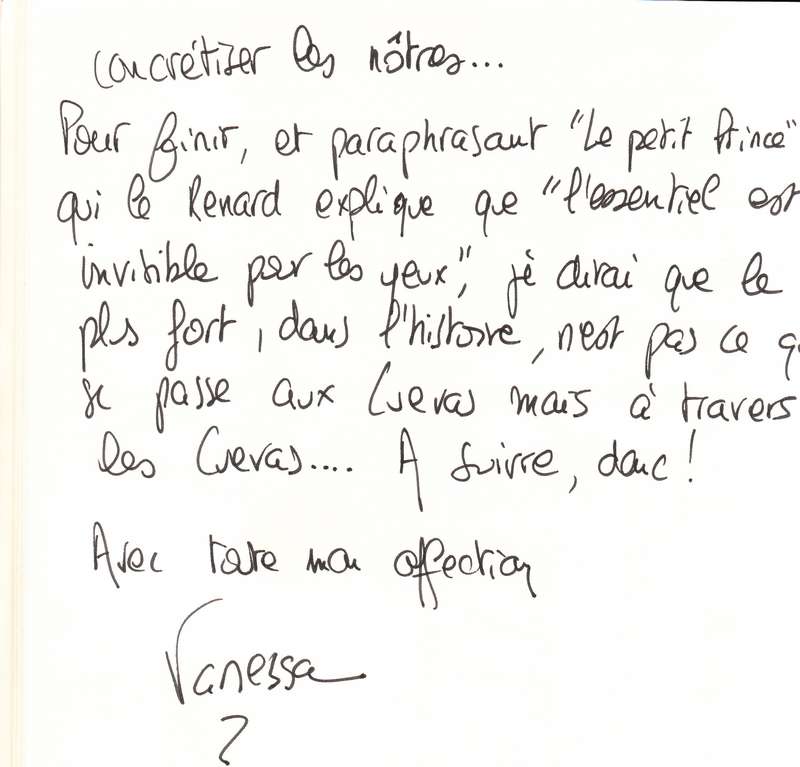 concrétiser les nôtres...
Pour finir, et paraphrasant "Le petit Prince"
qui le Renard explique que "l'essentiel est
invisible par les yeux", je dirai que le
plus fort, dans l'histoire, n'est pas ce q
se passe aux Cuevas mais à travers
les Cuevas.... A suivre, donc !
Avec toute mon affection
Vanessa